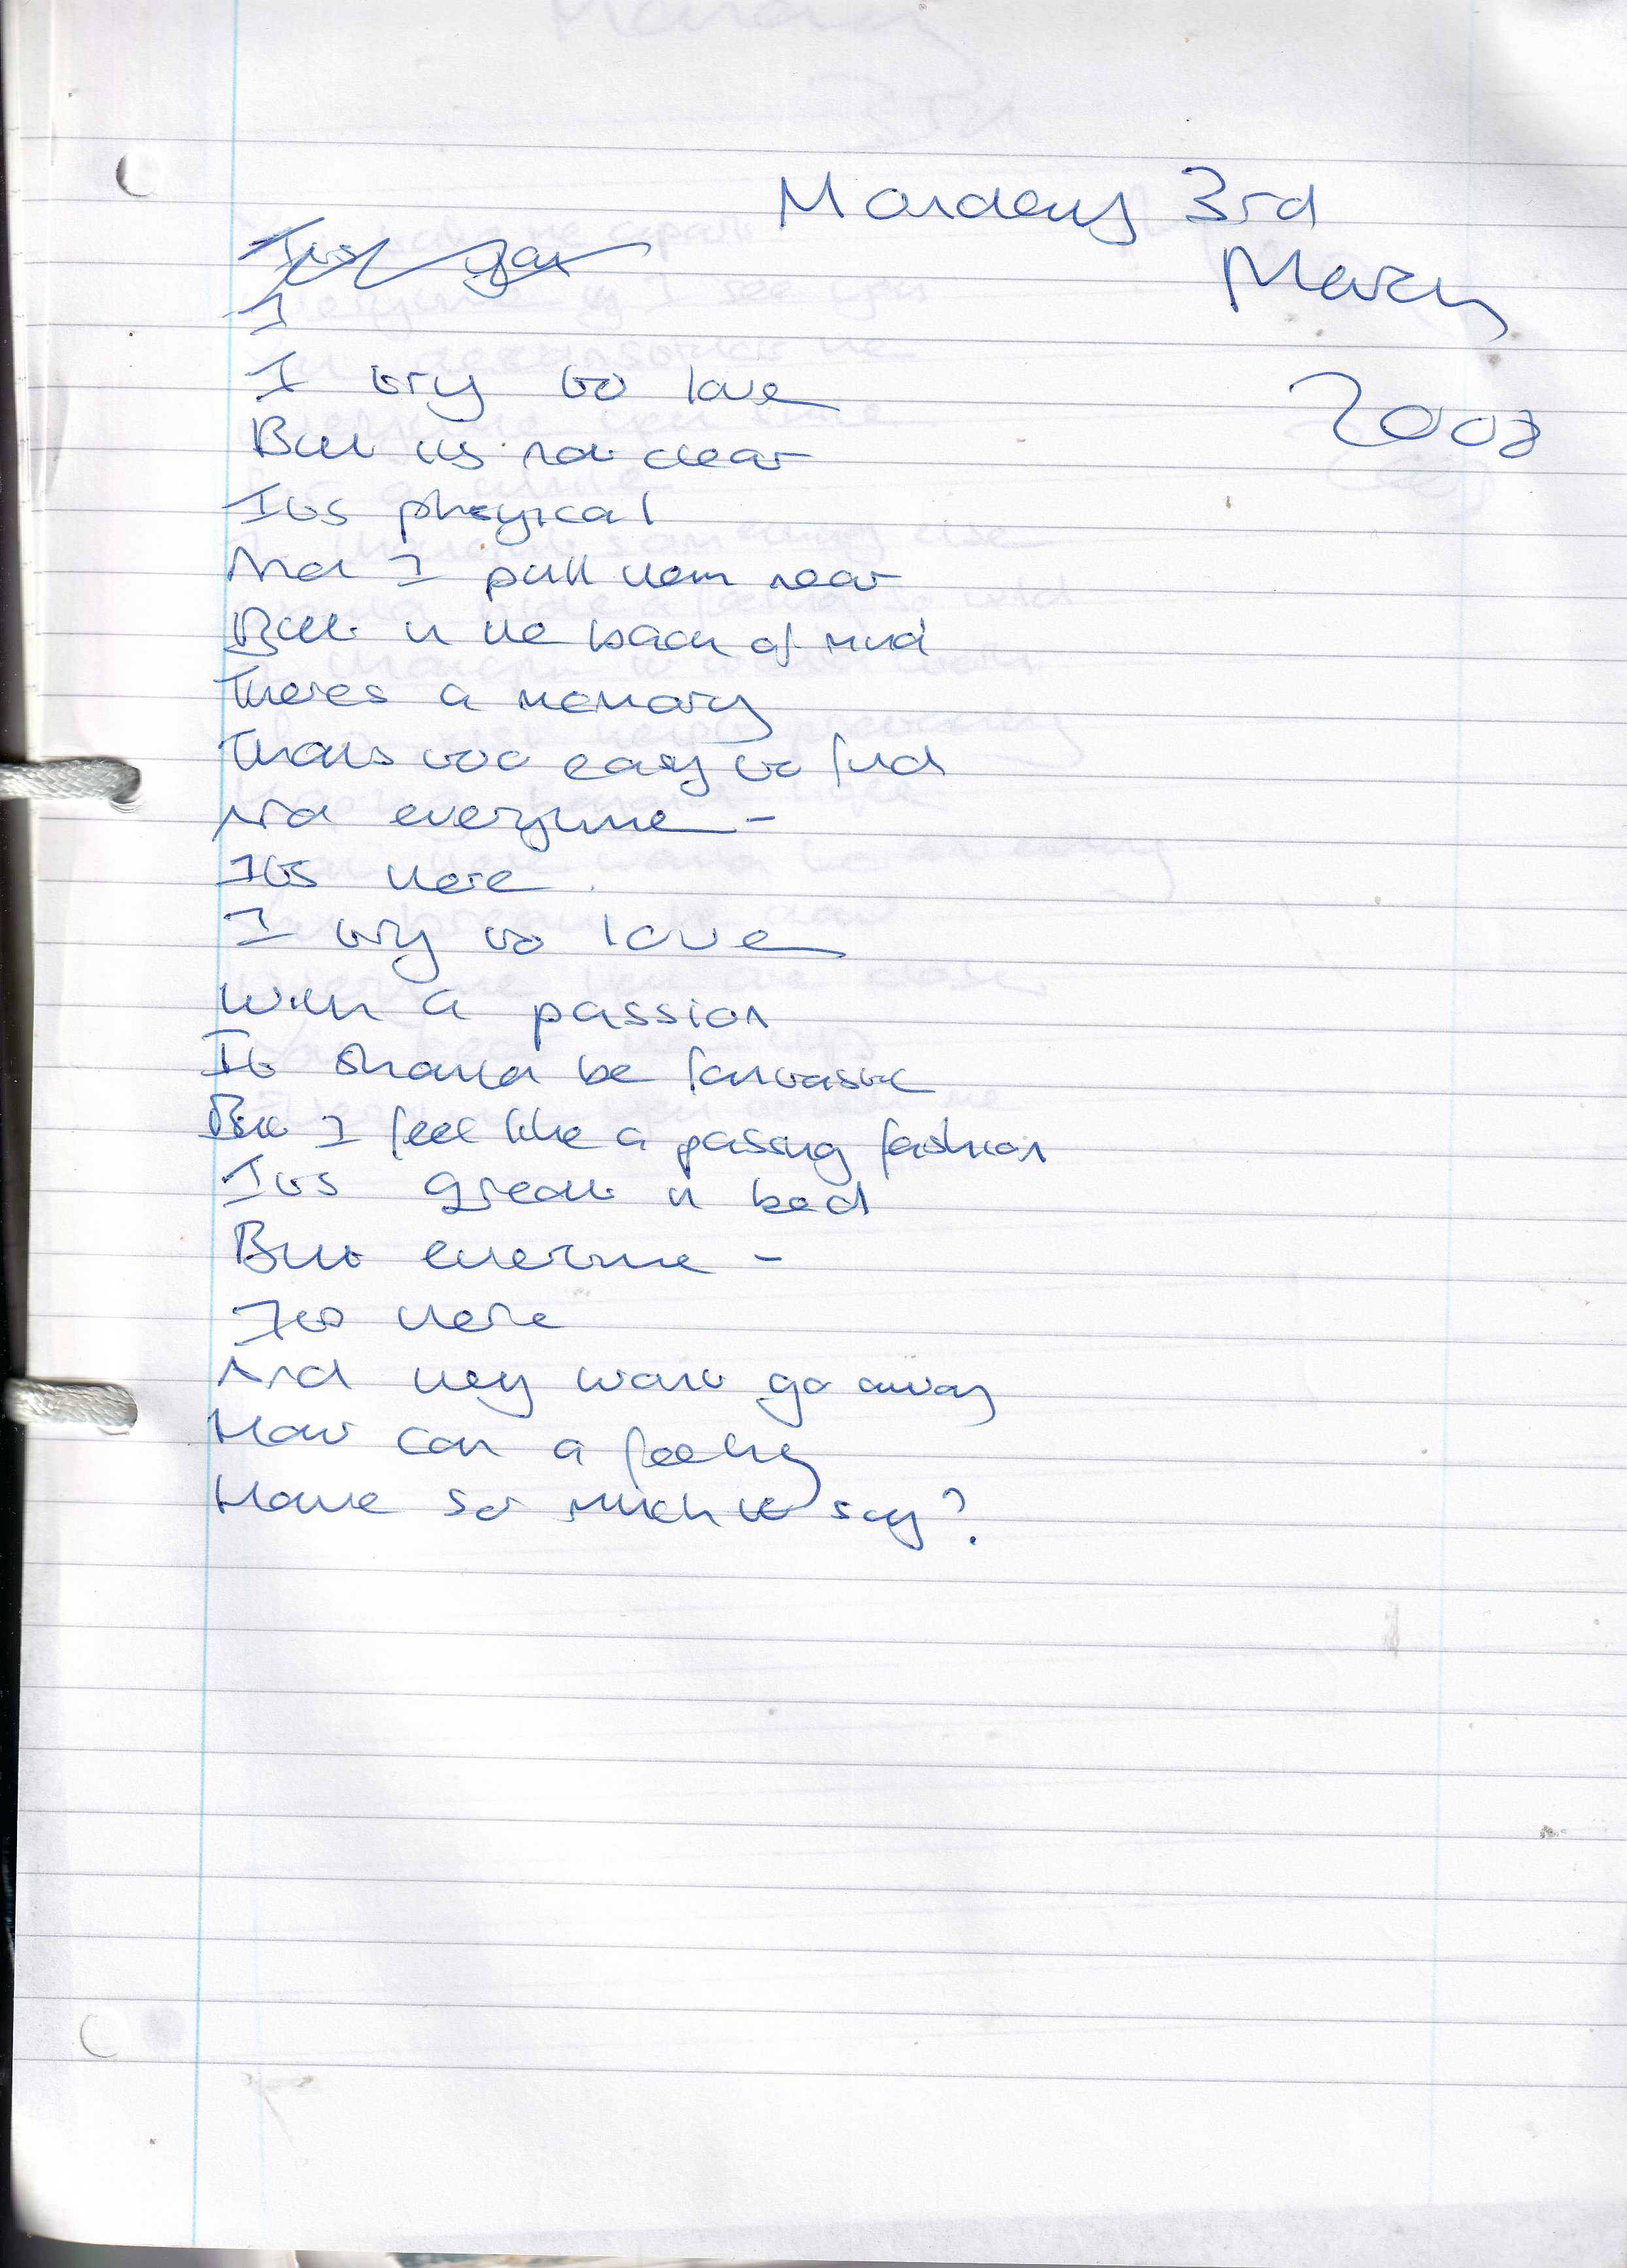 Monday 3rd
March
2008
I
I try to love
But its not clear
Its pheyical
And I pull them near
But in the back of mind
Theres a memory
Thats too easy to find
And everytime -
Its there
I try to love
With a passion
It should be fantastic
But I feel like a passing fashion
Its great in bed
But everytime -
Its there
And they wont go away
How can a feeling
Have so much to say?